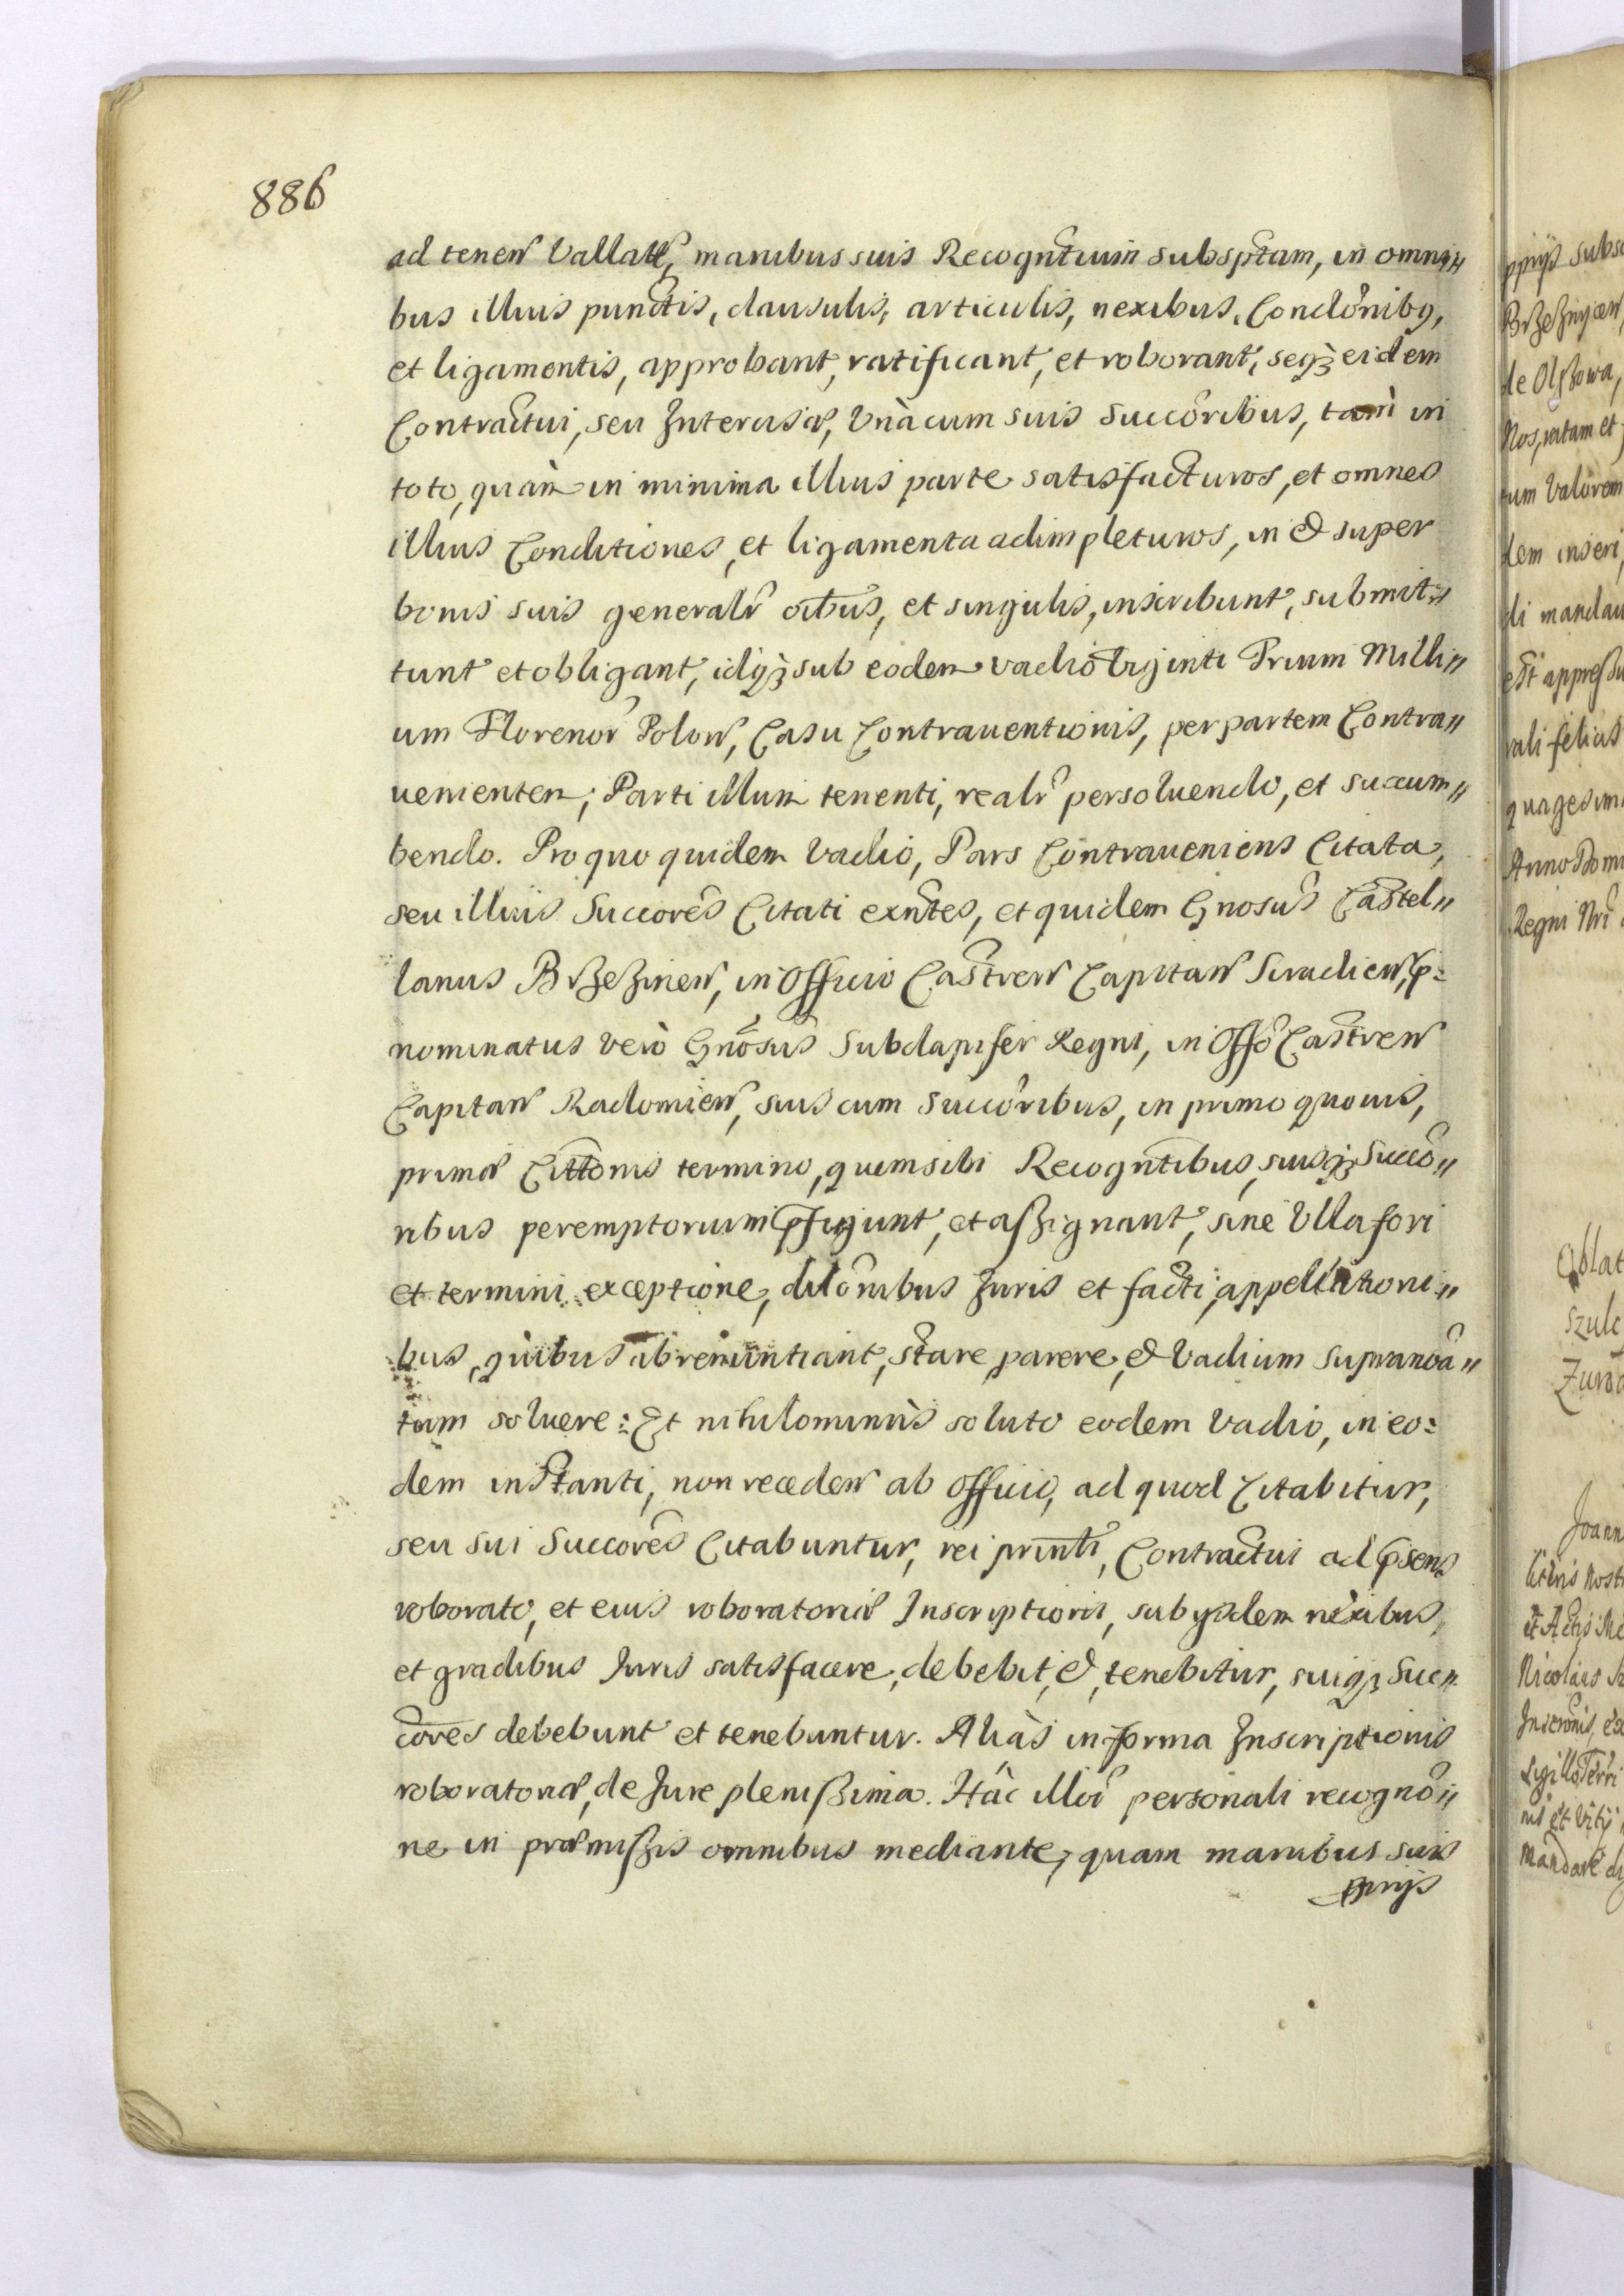 886
ad tenen Vallatae, manibus suis Recogntium subsptam, in omni„
bus illius punctis, clausulis, articulis, nexibus, Condônibq,
et ligamentis, approbant, ratificant, et roborant, seqz eidem
Contractui, seu Intercisae, Unà cum suis Succôribus, tam in
toto, quàm in minima illius parte satisfacturos, et omnes
illius Conditiones, et ligamenta adimpleturos, in & super
bonis suis generalr oîbus, et singulis, inscribunt, submit„
tunt et obligant, idqz sub eodem vadio Viginti Trium Milli„
um Florenor Polon, Casu Contrauentionis, per partem Contra„
uenientem, Parti illum tenenti, realr persoluendo, et succum„
bendo. Pro quo quidem Vadio, Pars Contraueniens Citata,
seu illius Succorês Citati exntes, et quidem Gnosus Castel„
lanus Brzezinen, in Officio Castren Capitan Siradien, p:
nominatus verò Gnôsus Subdapifer Regni, in Offô Castren
Capitan Radomien, suis cum Succôribus, in primo quouis,
primae Cittonis termino, quem sibi Recogntibus, suisqz Succô„
ribus peremptorium pfigunt, et aszignant, sine Ulla fori
et termini exceptione, dilônibus Juris et facti, appellationi„
bus, quibus abrenuntiant, stare, parere, & Vadium supranoâ„
tum soluere: Et nihilominùs soluto eodem Vadio, in eo:
dem instanti, non receden ab Officio, ad quod Citabitur,
seu sui Succorês Citabuntur, rei printi, Contractui ad psens
roborato, et eius roboratoriae Inscriptioni, sub ijsdem nexibus,
et gradibus Juris satisfacere, debebit, &, tenebitur, suiqz Suc„
côres debebunt et tenebuntur. Aliàs in forma Inscriptionis
roboratoriae, de Jure plenissima. Hâc illor personali recognô„
ne in praemiszis omnibus mediante, quam manibus suis
pprijs
pprijs subs
Brzeznicen,
de Olszowa,
Nos, ratam et
tum Valorem
dem inseri,
di mandau
est appressu
rali felicis
quagesim
Anno Domi
Regni Nri
Oblat
Szulc
Joann
literis Nost
et Actis
Nicolaus
Inscronis,
Sigillo Terri
nis et
Mandare